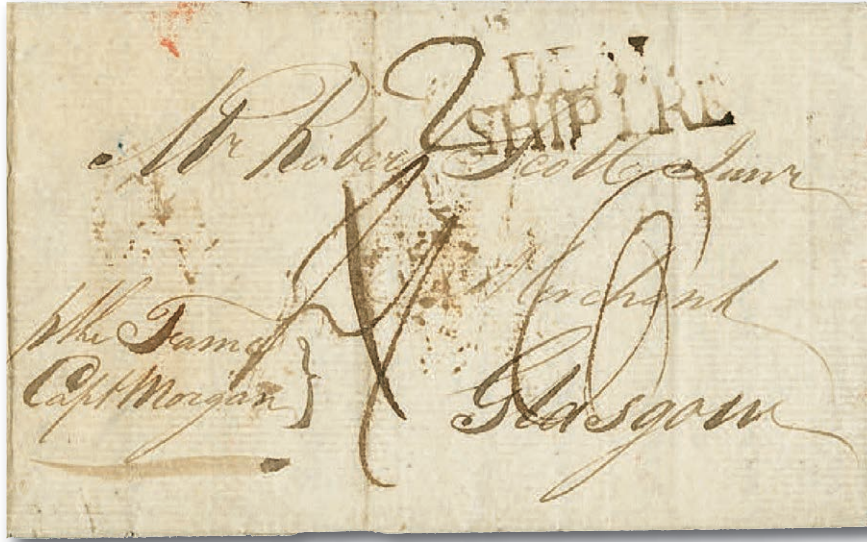 2
SHIP LRE
Mr Robert Scott Junr
Merchant
Glasgow
p the Fame
Capt Morgan